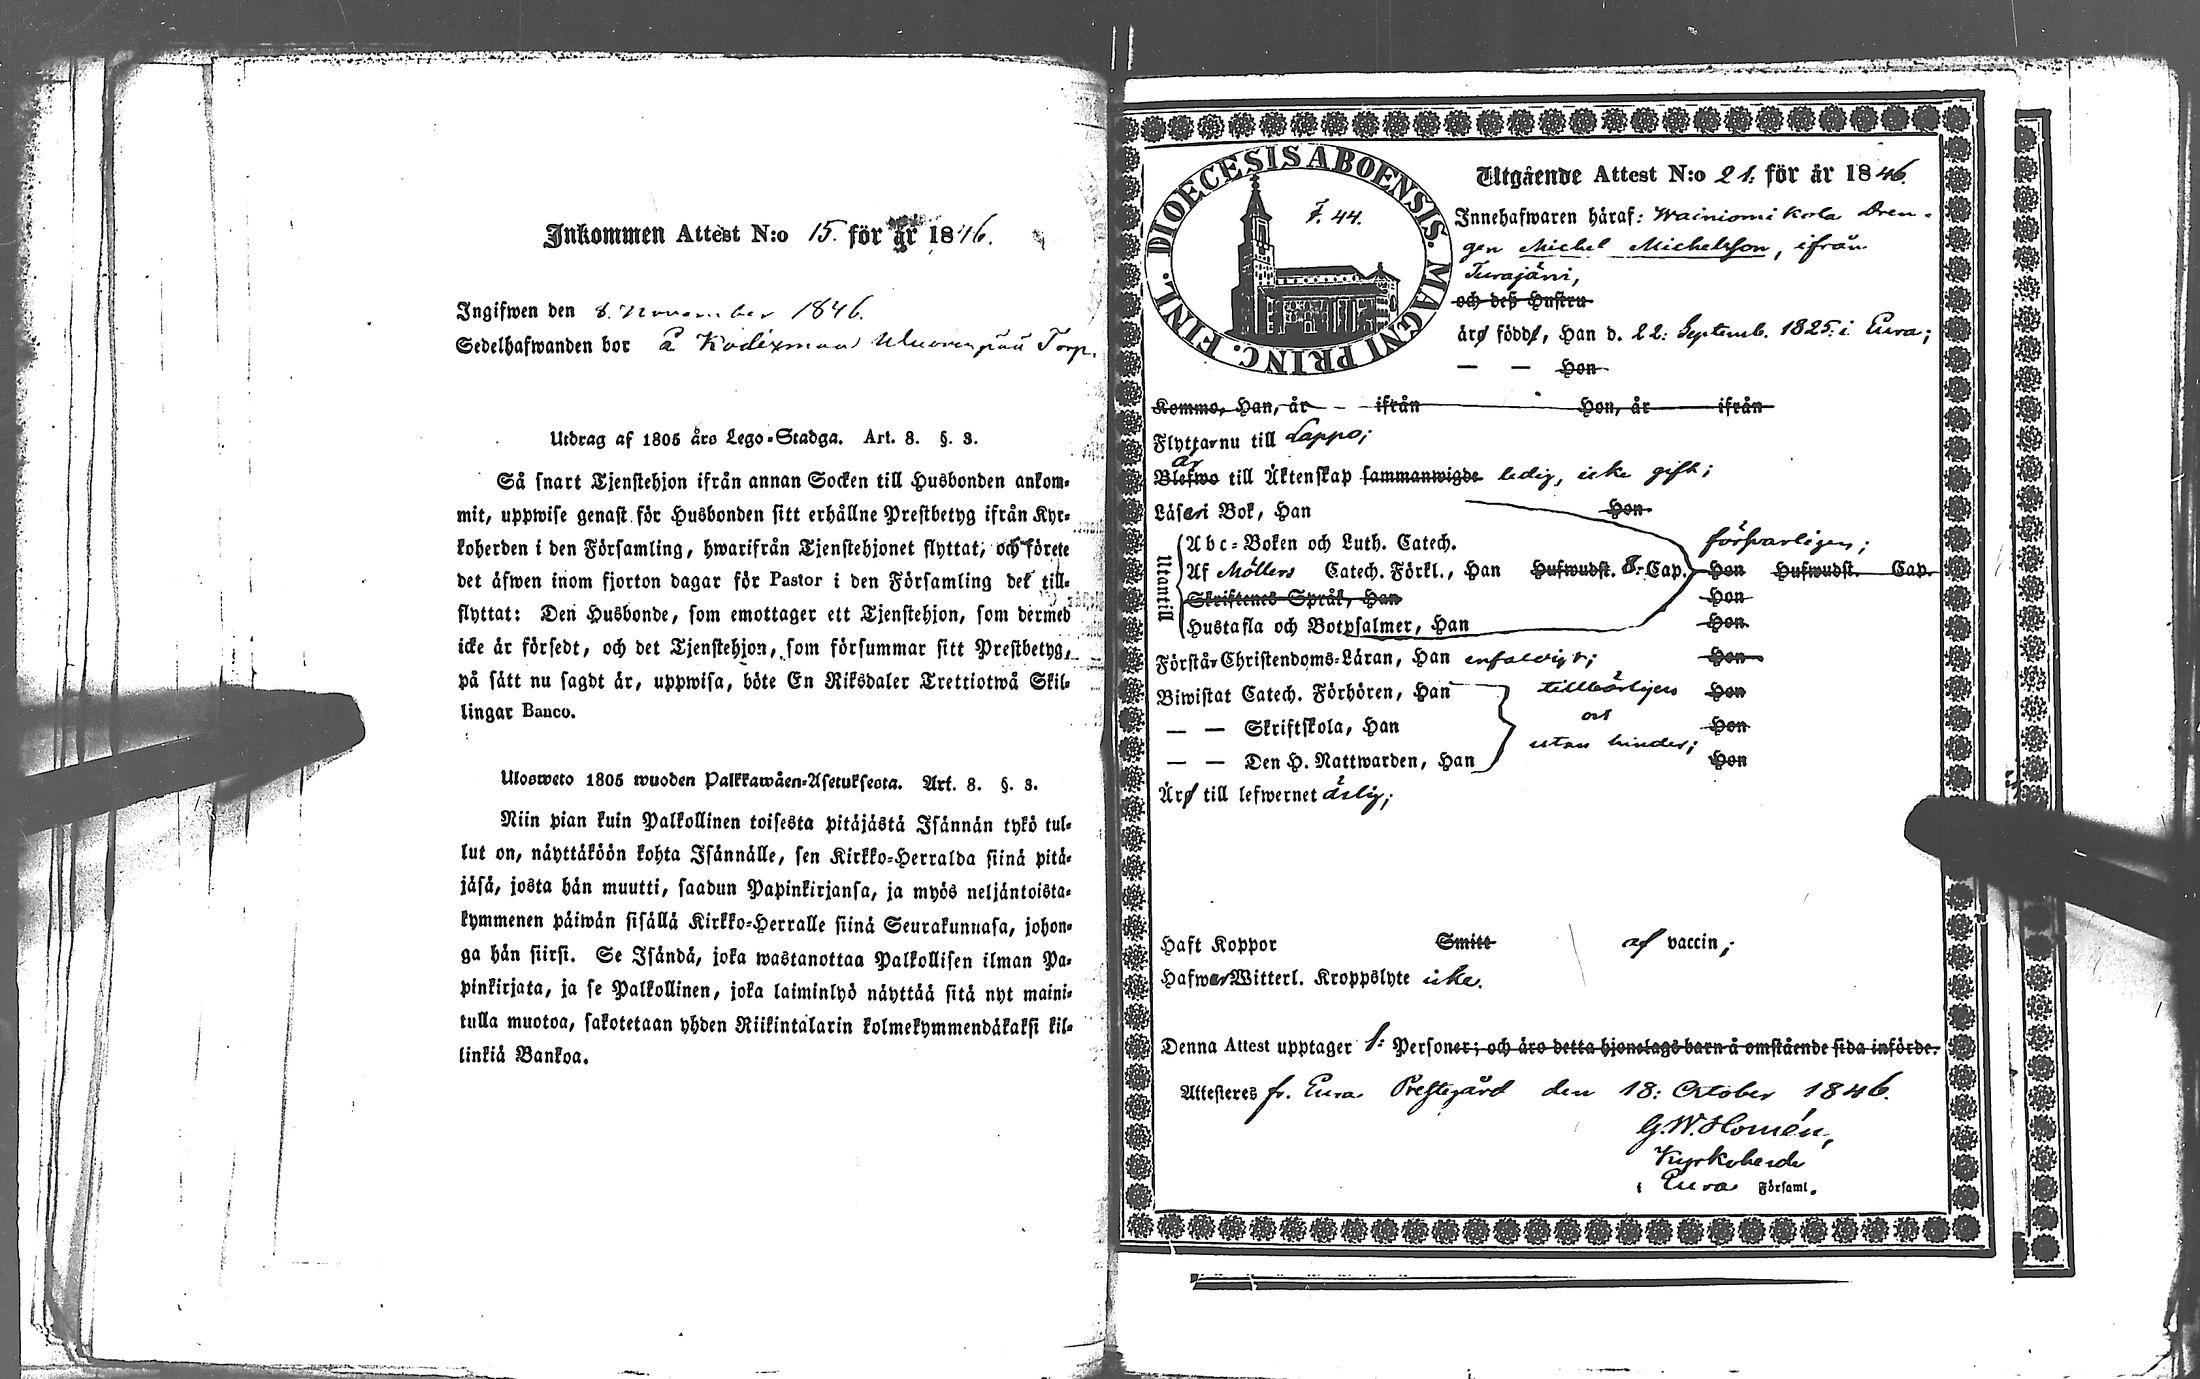 Inkommen Attest N:o 15. för år 1846.
Ingifwen den 8. November 1846.
Sedelhafwanden bor å Torp.
Utdrag af 1805 års Lego-Stadga. Art. 8. §. 3.
Så snart Tjenstehjon ifrån annan Socken till Husbonden ankom-
mit, uppwise genast för Husbonden sitt erhållne Prestbetyg ifrån Kyr-
koherden i den Församling, hwarifrån Tjenstehjonet flyttat, och förete
det äfwen inom fjorton dagar för Pastor i den Församling det till-
flyttat: Den Husbonde, som emottager ett Tjenstehjon, som dermed
icke är försedt, och det Tjenstehjon, som försummar sitt Prestbetyg,
på sätt nu sagdt är, uppwisa, böte En Riksdaler Trettiotwå Skil-
lingar Banco.
Ulosweto 1805 wuoden Palkkawäen-Asetuksesta. Art. 8. §. 3.
Niin pian kuin Palkollinen toisesta pitäjästä Isännän tykö tul-
lut on, näyttäköön kohta Isännälle, sen Kirkko-Herralda siinä pitä-
jäsä, josta hän muutti, saadun Papinkirjansa, ja myös neljäntoista-
kymmenen päiwän sisällä Kirkko-Herralle siinä Seurakunnasa, johon-
ga hän siirsi. Se Isändä, joka wastanottaa Palkollisen ilman Pa-
pinkirjata, ja se Palkollinen, joka laiminlyö näyttää sitä nyt maini-
tulla muotoa, sakotetaan yhden Riikintalarin kolmekymmendäkaksi kil-
linkiä Bankoa.
DIOECESIS ABOENSIS. MAGNI PRINC. FINL.
F. 44.
Utgående Attest N:o 21: för år 1846.
Innehafwaren häraf: Wainiomikola Dren-
gen Michel Michelsson, ifrån
Turajärvi,
och deß Hustru
äro födde, Han d. 22: Septemb. 1825. i Eura;
— — Hon
Komne, Han, år ifrån Hon, år ifrån
Flyttar nu till Lappo;
är
Blefwo till Äktenskap sammanwigde ledig, icke gift;
Läser i Bok, Han Hon
Utantill
Abc-Boken och Luth. Catech. försvarligen;
Af Möllers Catech. Förkl., Han Hufwudst. 8. Cap. Hon Hufwudst. Cap.
Skriftenes Språk, Han Hon
Hustafla och Botpsalmer, Han Hon
Förstår Christendoms-Läran, Han enfaldigt; Hon
Biwistat Catech. Förhören, Han tillbörligen Hon
— — Skriftskola, Han och Hon
— — Den H. Nattwarden, Han utan hinder; Hon
Äro till lefwernet ärlig;
Haft Koppor Smitt af vaccin;
Hafwer Witterl. Kroppslyte icke.
Denna Attest upptager 1: Personer; och äro detta hjonelags barn å omstående sida införde.
Attesteres fr. Eura Prestegård den 18: October 1846.
G.W. Homén,
Kyrkoherde
i Eura Församl.